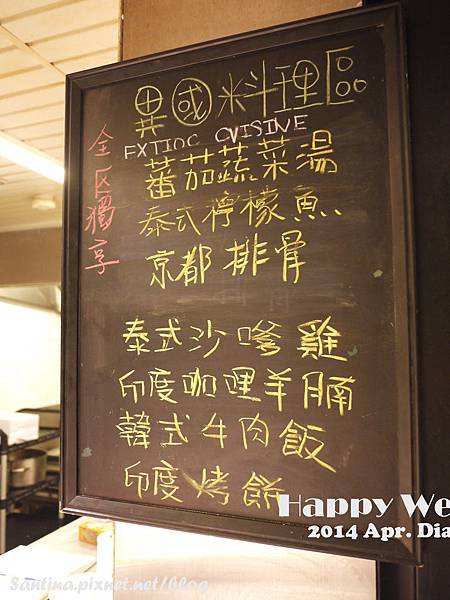 異國料理區
EXTIOC CVISINE
全区獨享
蕃茄蔬菜湯
泰式檸檬魚
京都排骨
泰式沙嗲雞
印度咖哩羊腩
韓式牛肉飯
印度烤餅
Happy We
2014 Apr. Dia
Santina.pixnet.net/blog